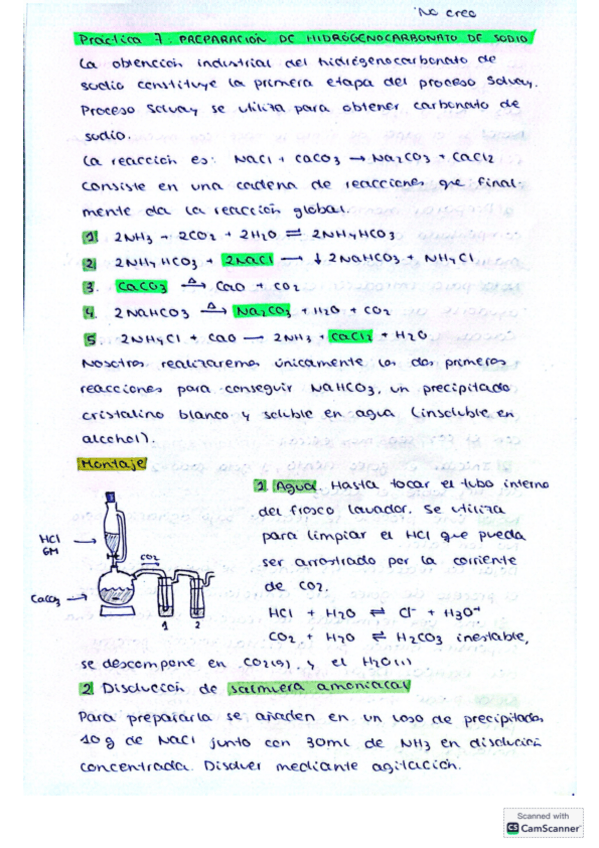 No creo
Práctica 7: PREPARACIÓN DE HIDRÓGENOCARBONATO DE SODIO
La obtención industrial del hidrógenocarbonato de
sodio constituye la primera etapa del proceso Solvay.
Proceso Solvay se utiliza para obtener carbonato de
sodio.
La reacción es: NaCl + CaCO3 → Na2CO3 + CaCl2
Consiste en una cadena de reacciones que final-
mente da la reacción global.
1. 2NH3 + 2CO2 + 2H2O ⇌ 2NH4HCO3
2. 2NH4HCO3 + 2NaCl → ↓2NaHCO3 + NH4Cl
3. CaCO3 →Δ CaO + CO2
4. 2NaHCO3 →Δ Na2CO3 + H2O + CO2
5. 2NH4Cl + CaO → 2NH3 + CaCl2 + H2O
Nosotros realizaremos únicamente las dos primeras
reacciones para conseguir NaHCO3, un precipitado
cristalino blanco y soluble en agua (insoluble en
alcohol).
Montaje
HCl
6M
CaCO3
CO2
1 2
1. Agua. Hasta tocar el tubo interno
del frasco lavador. Se utiliza
para limpiar el HCl que pueda
ser arrastrado por la corriente
de CO2.
HCl + H2O ⇌ Cl⁻ + H3O⁺
CO2 + H2O ⇌ H2CO3 inestable,
se descompone en CO2(g) y el H2O(l)
2. Disolución de salmuera amoniacal
Para prepararla se añaden en un vaso de precipitados
10g de NaCl junto con 30ml de NH3 en disolución
concentrada. Disolver mediante agitación.
Scanned with
CS CamScanner